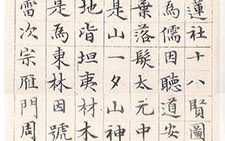 蓮社十八賢圖
為儒因聽道安
葉落髮太元中
是山一夕山神
地皆坦夷材木
是為東林因號
雷次宗雁門周